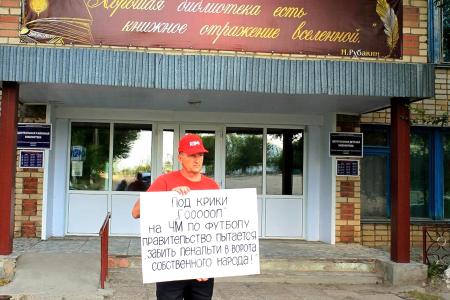 "Хорошая библиотека есть
книжное отражение вселенной."
Н.Рубакин
ПОД КРИКИ
ГООООOЛ
НА ЧМ ПО ФУТБОЛУ
ПРАВИТЕЛЬСТВО ПЫТАЕТСЯ
ЗАБИТЬ ПЕНАЛЬТИ В ВОРОТА
СОБСТВЕННОГО НАРОДА!